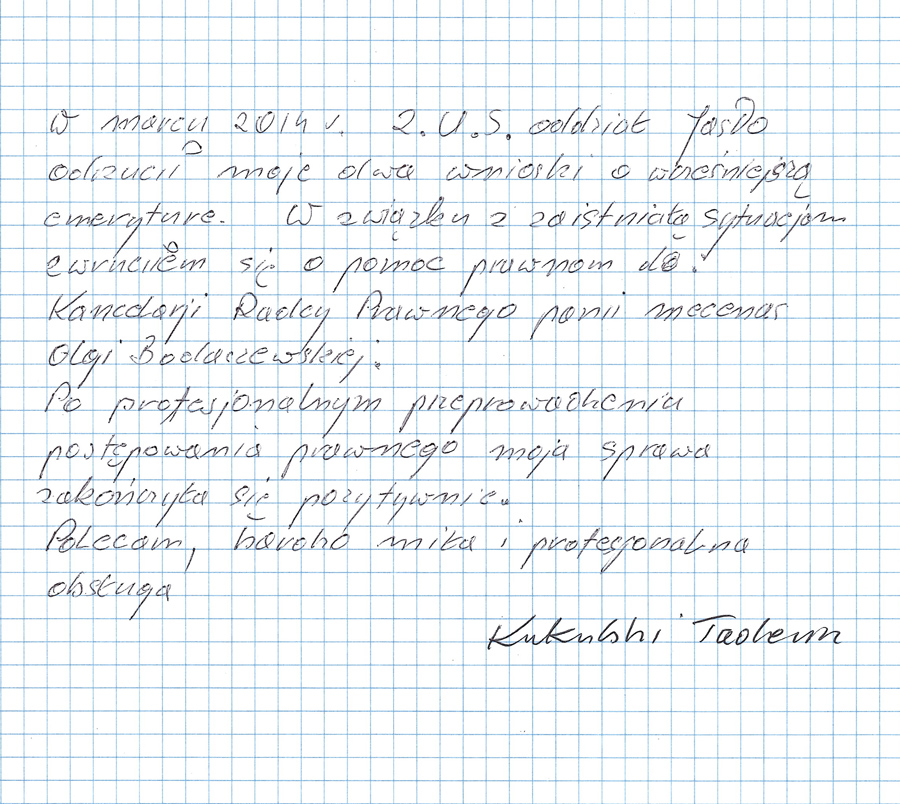 W marcu 2014 r. Z.U.S. oddział Jasło
odrzucił moje dwa wnioski o wcześniejszą
emeryturę. W związku z zaistniałą sytuacjom
zwruciłem się o pomoc prawnom do:
Kancelarji Radcy Prawnego panii mecenas
Olgi Bodaszewskiej.
Po profesjonalnym przeprowadzeniu
postępowania prawnego moja sprawa
zakończyła się pozytywnie.
Polecam, bardzo miła i profesjonalna
obsługa
Kukulski Tadeusz